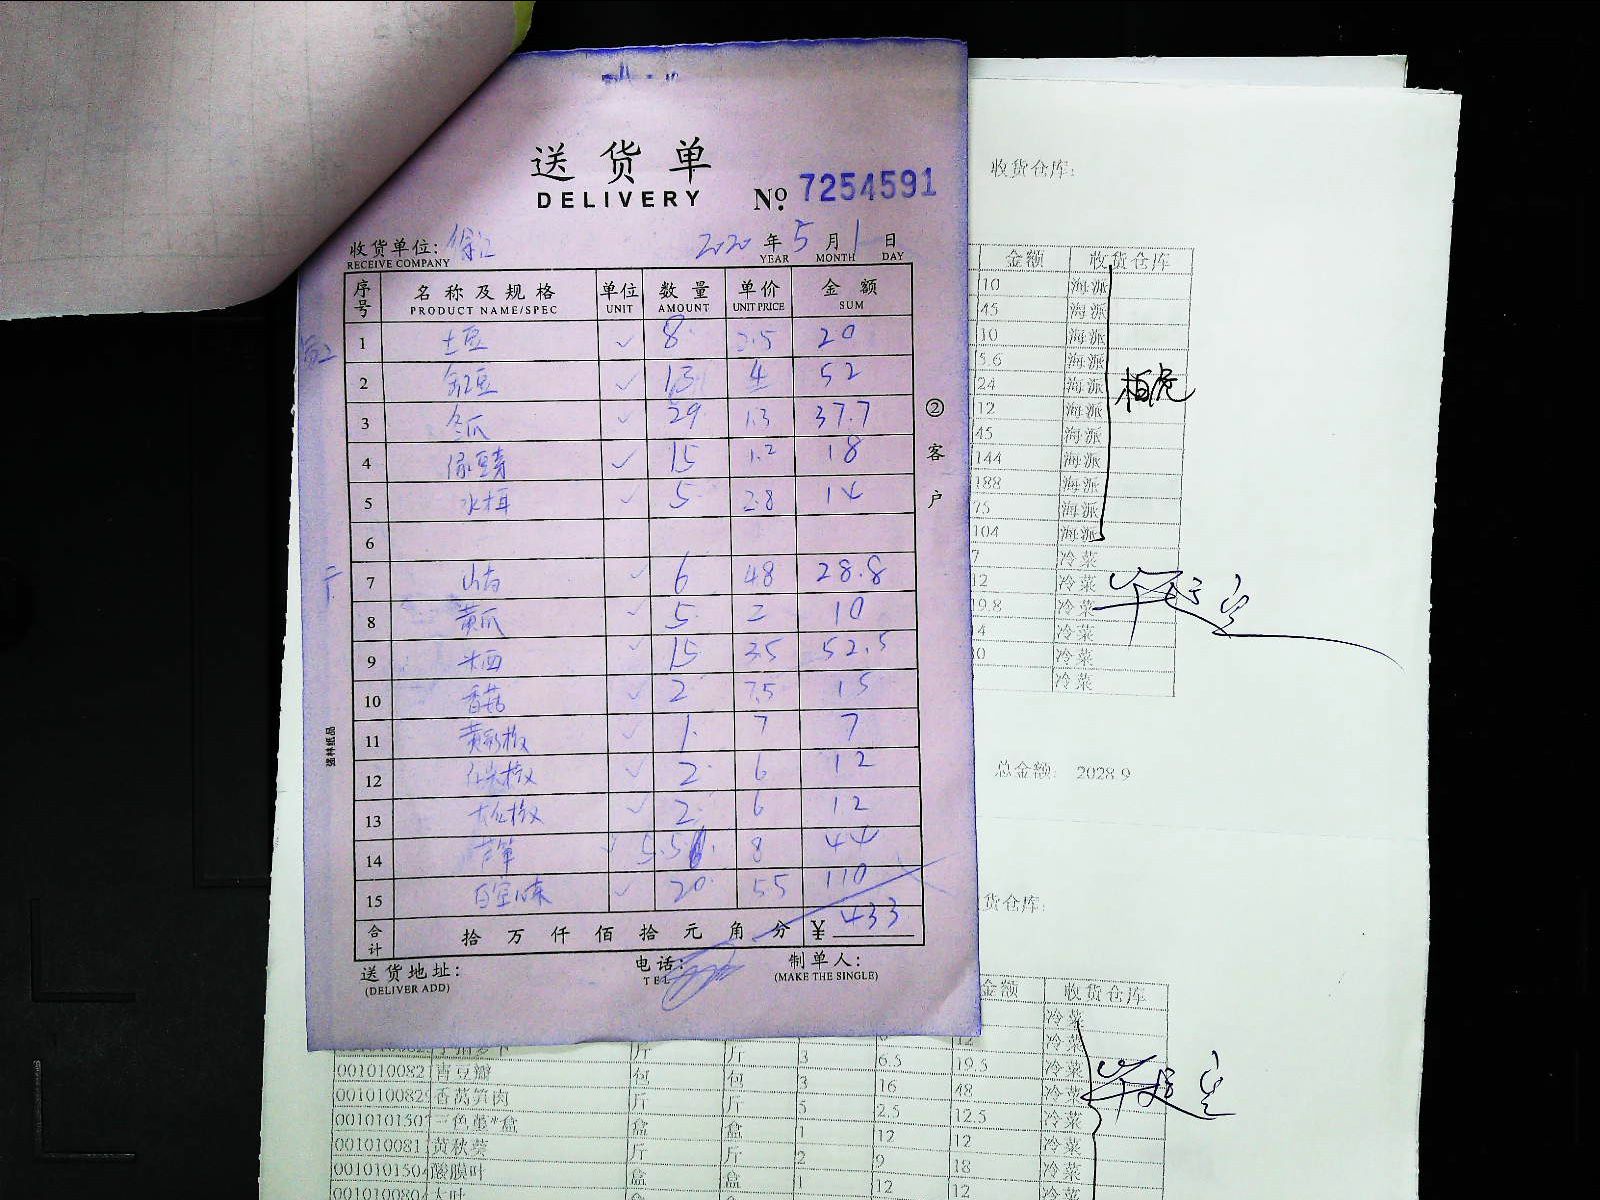 送货单
DELIVERY
№ 7254591
收货单位: 徐汇 2020 年 5 月 1 日
RECEIVE COMPANY YEAR MONTH DAY
序号 名称及规格 单位 数量 单价 金额
PRODUCT NAME/SPEC UNIT AMOUNT UNIT PRICE SUM
1 土豆 ✓ 8 2.5 20
2 ✓ 13 4 52
3 冬瓜 ✓ 29 1.3 37.7
4 绿豆芽 ✓ 15 1.2 18
5 木耳 ✓ 5 2.8 14
6
7 ✓ 6 48 28.8
8 黄瓜 ✓ 5 2 10
9 ✓ 15 35 52.5
10 香菇 ✓ 2 7.5 15
11 黄彩椒 ✓ 1 7 7
12 ✓ 2 6 12
13 大红椒 ✓ 2 6 12
14 芦笋 ✓ 5.5 8 44
15 ✓ 20 55 110
合计 拾 万 仟 佰 拾 元 角 分 ¥ 433
送货地址: 电话: 制单人:
(DELIVER ADD) TEL (MAKE THE SINGLE)
② 客户
强林纸品
收货仓库:
金额 收货仓库
10 海派
45 海派
10 海派
5.6 海派
24 海派
12 海派
45 海派
144 海派
188 海派
75 海派
104 海派
7 冷菜
12 冷菜
9.8 冷菜
4 冷菜
0 冷菜
冷菜
总金额: 2028.9
货仓库:
金额 收货仓库
冷菜
斤 斤 3 12 冷菜
001010082 青豆瓣 包 包 3 6.5 19.5 冷菜
001010082 香莴笋肉 斤 斤 5 16 48 冷菜
001010150 三色堇*盒 盒 盒 1 2.5 12.5 冷菜
001010081 黄秋葵 斤 斤 2 12 12 冷菜
001010150 酸膜叶 盒 盒 1 9 18 冷菜
001010080 12 12 冷菜